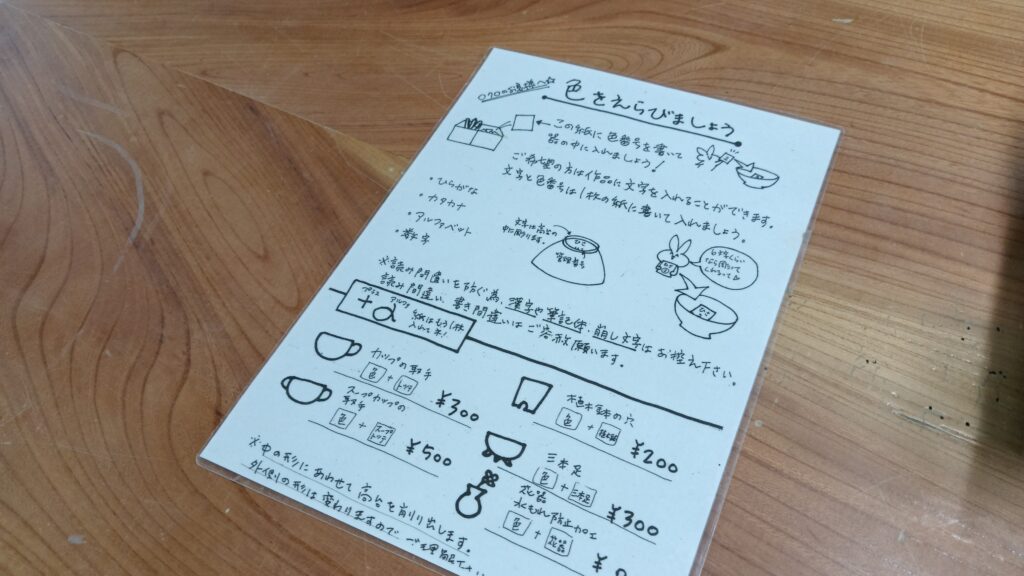 ロクロのお客様へ☆
色をえらびましょう
← この紙に色番号を書いて
器の中に入れましょう!
ご希望の方は作品に文字を入れることができます。
文字と色番号は1枚の紙に書いて入れましょう。
・ひらがな
・カタカナ
・アルファベット
・数字
文字は高台の
中に彫ります。
管理番号
※読み間違いを防ぐ為、漢字や筆記体、崩し文字はお控え下さい。
読み間違い、書き間違いはご容赦願います。
プラス アルファ
+α 紙はもう1枚
入れて下さい!
カップの取手
色 + トッテ
¥300
スープカップの
取手
色 + スープトッテ
¥500
植木鉢の穴
色 + 植木鉢
¥200
三本足
色 + 三本足
¥300
花器
水もれ防止加工
色 + 花器
¥
※中の形にあわせて高台を削り出します。
外側の形は変わりますので